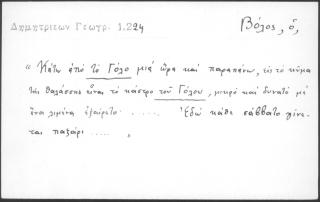 Δημητριέων Γεωγρ. 1.224
Βόλος, ὁ,
“ Κάτω ἀπὸ τὸ Γόλο μιὰ ὥρα καὶ παραπάνω, εἰς τὸ κῦμα
τῆς θαλάσσης εἶναι τὸ κάστρο τοῦ Γόλου, μικρὸ καὶ δυνατὸ μὲ
ἕνα λιμένα ἐξαίρετο ...... Ἐδῶ κάθε σάββατο γίνε-
ται παζάρι ..... „